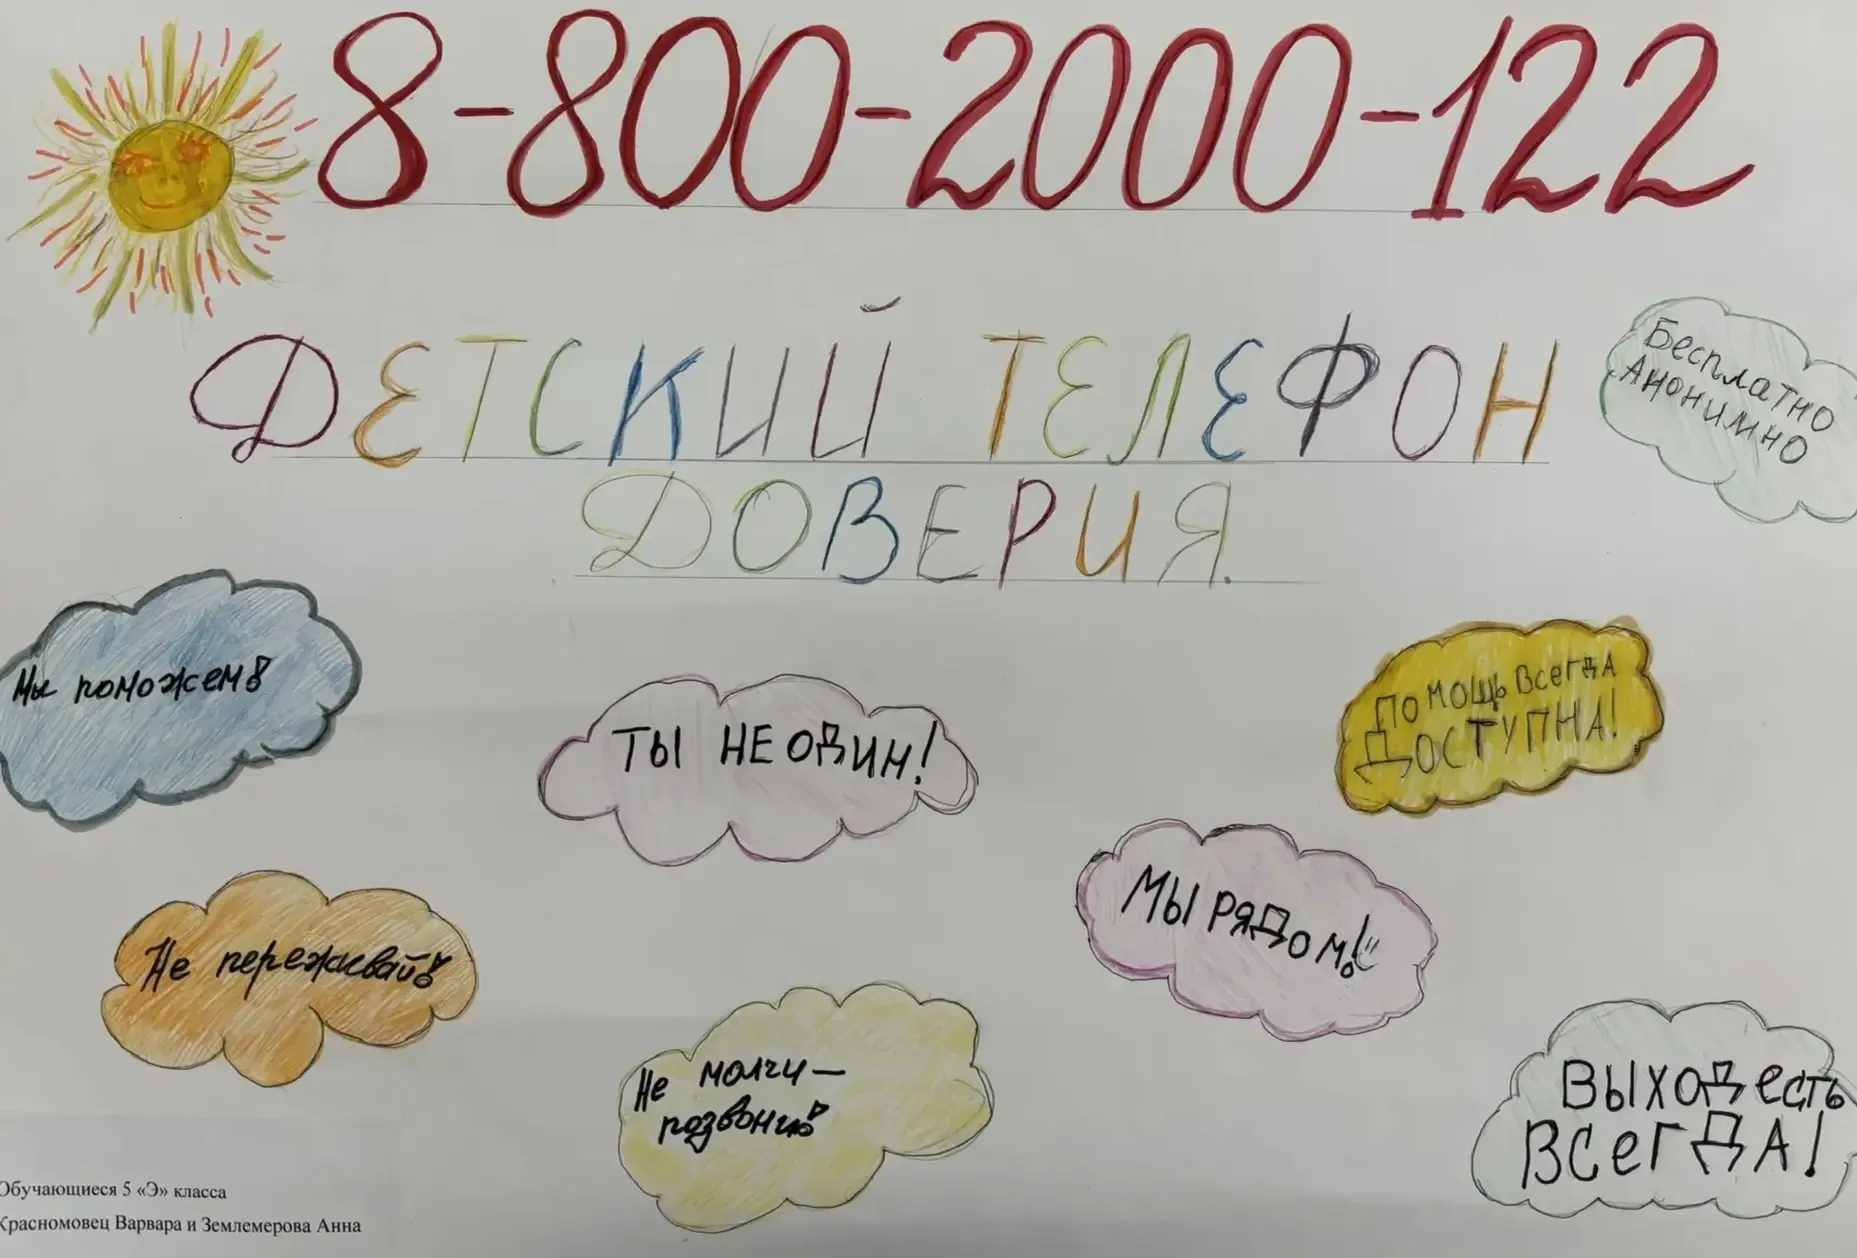 8-800-2000-122
ДЕТСКИЙ ТЕЛЕФОН
ДОВЕРИЯ.
Бесплатно
Анонимно
Мы поможем!
ТЫ НЕ ОДИН!
ПОМОЩЬ ВСЕГДА
ДОСТУПНА!
МЫ РЯДОМ!
Не переживай!
Не молчи –
позвони!
ВЫХОД есть
ВСЕГДА!
Обучающиеся 5 «Э» класса
Красномовец Варвара и Землемерова Анна